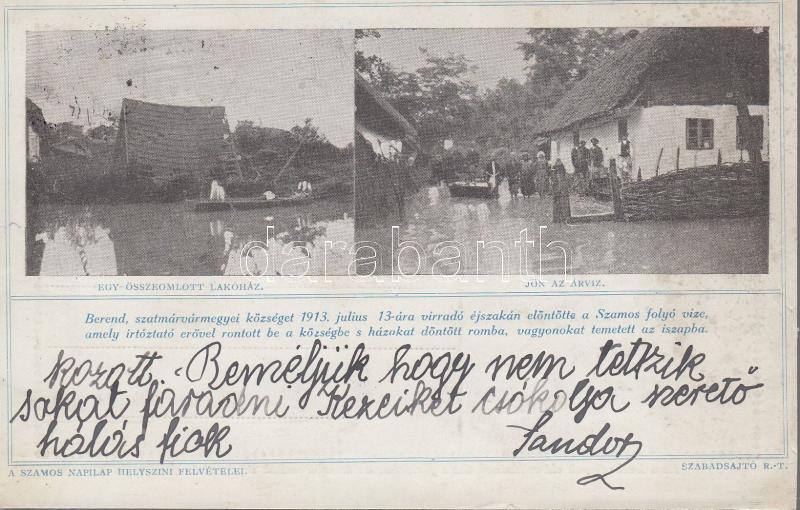 EGY ÖSSZEOMLOTT LAKÓHÁZ.
JÖN AZ ÁRVIZ.
darabanth
Berend, szatmárvármegyei községet 1913. julius 13-ára virradó éjszakán elöntötte a Szamos folyó vize,
amely irtóztató erővel rontott be a községbe s házakat döntött romba, vagyonokat temetett az iszapba.
kozott. Beméljük hogy nem tetszik
sokat fáradni Kezeiket csókolja szerető
hálás fiok Sandor
A SZAMOS NAPILAP HELYSZINI FELVÉTELEI.
SZABADSAJTÓ R.-T.